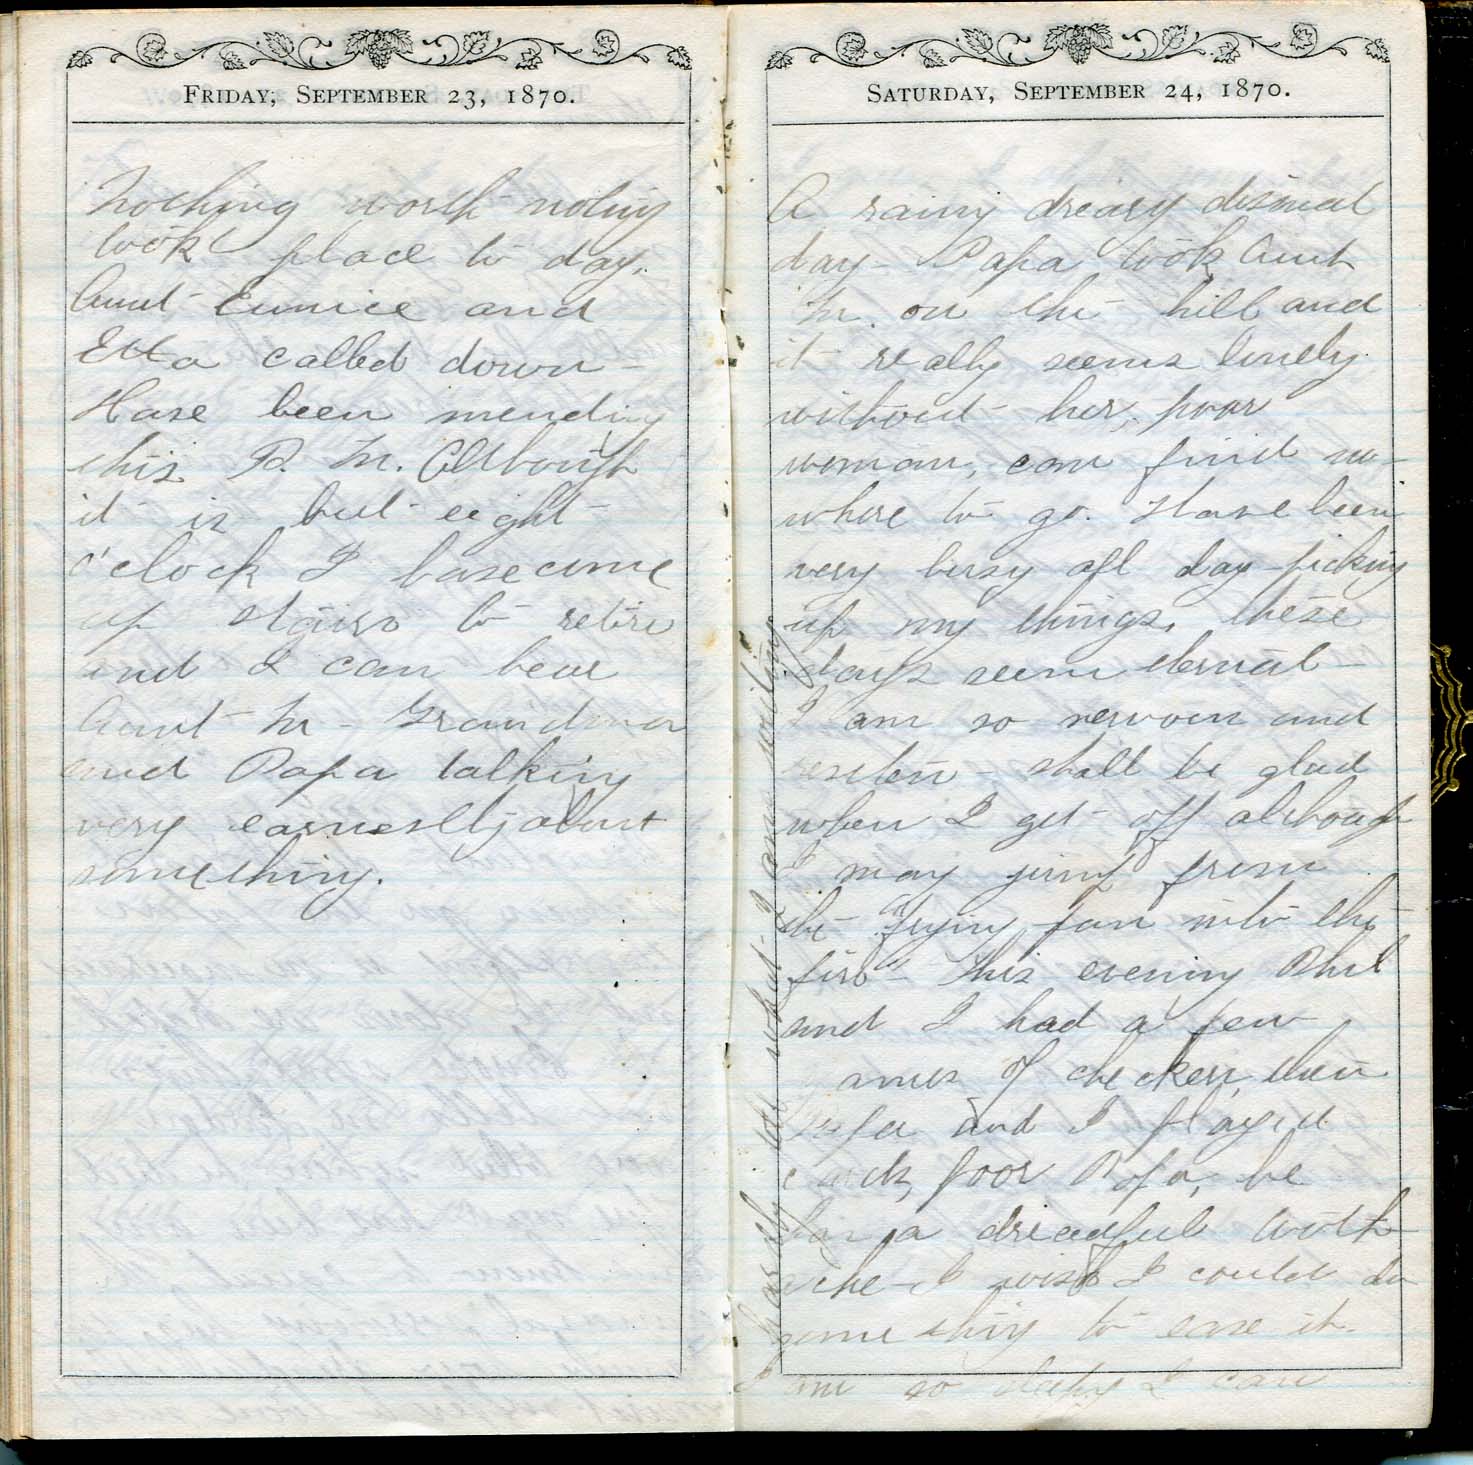 FRIDAY, SEPTEMBER 23, 1870.
Nothing worth noting
took place to day.
Aunt Eunice and
Etta called down -
Have been mending
this P. M. Although
it is but eight
o'clock I have come
up stairs to retire
and I can hear
Aunt M - Grandma
and Papa talking
very earnestly about
something.
SATURDAY, SEPTEMBER 24, 1870.
A rainy dreary dismal
day - Papa took Aunt
M. on the hill and
it really seems lonely
without her, poor
woman, can find no
where to go. Have been
very busy all day picking
up my things, these
days seem eternal -
I am so nervous and
restless - shall be glad
when I get off although
I may jump from
the "frying pan into the
fire" - This evening Phil
and I had a few
games of checkers, then
Papa and I played
cards, poor Papa, he
has a dreadful tooth
ache - I wish I could do
some thing to ease it.
I am so sleepy I can
hardly tell what I am writing